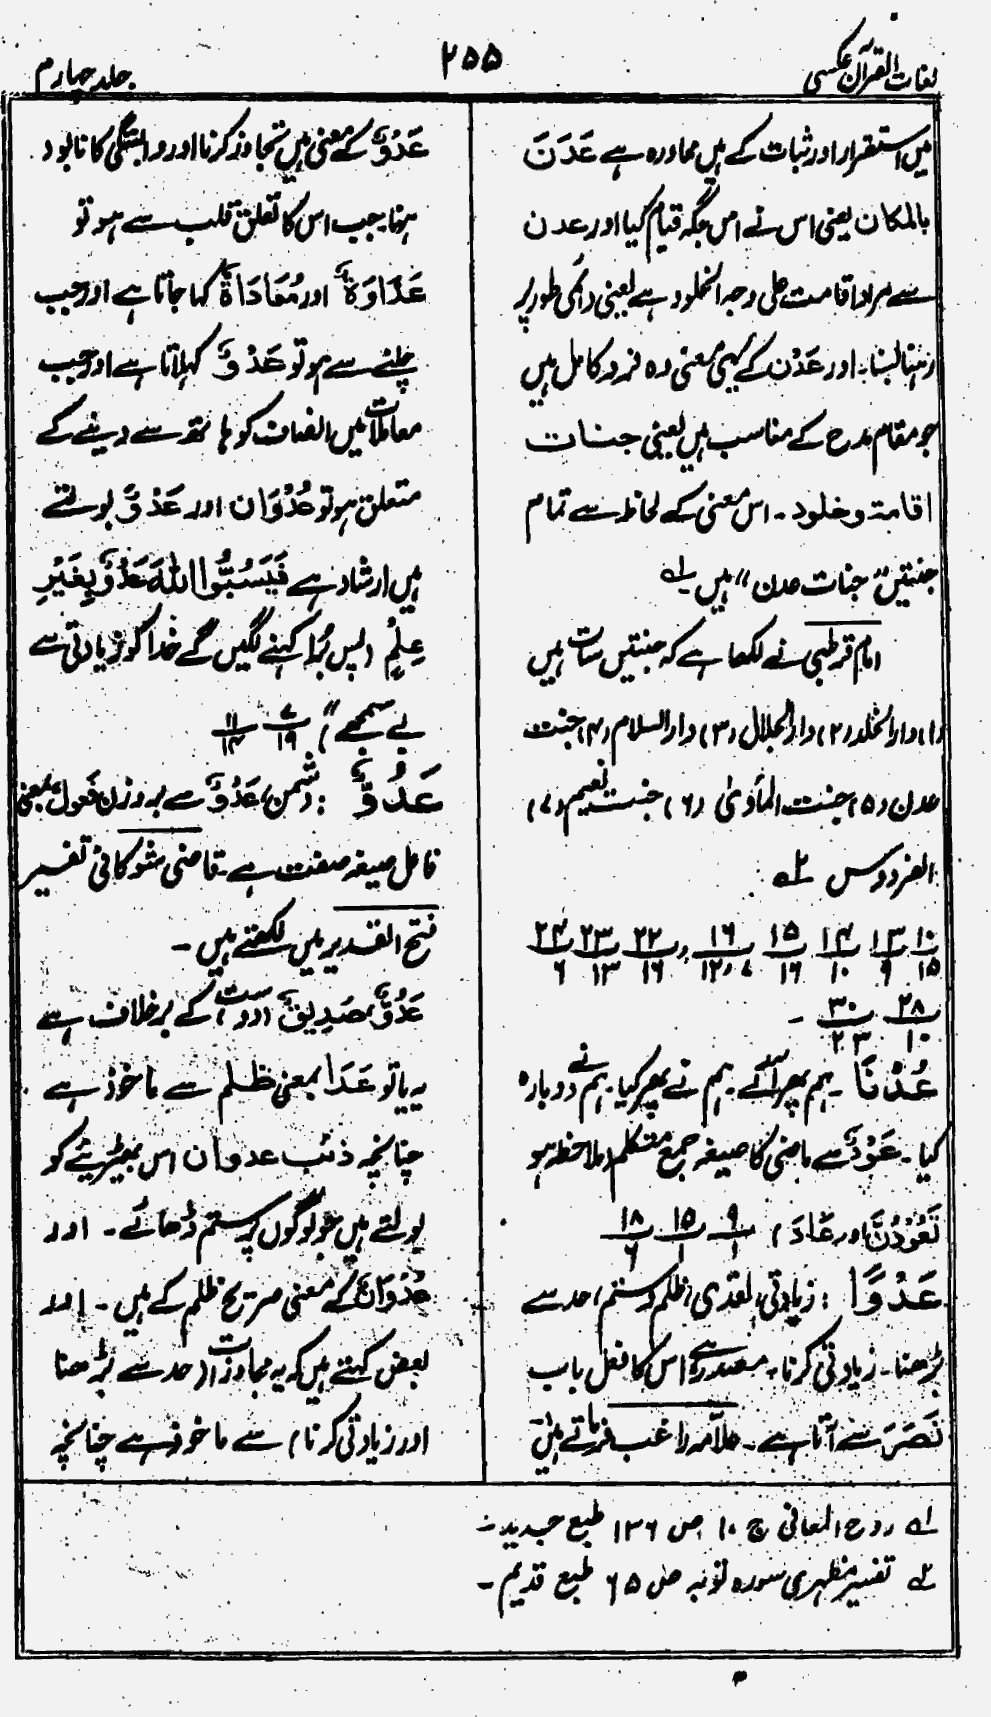 لغات القرآن عکسی
۲۵۵
جلد چہارم
میں استقرار اور ثبات کے ہیں محاورہ ہے عَدَنَ
بالمکان یعنی اس نے اس جگہ قیام کیا اور عدن
سے مراد اقامت علی وجہ الخلود ہے یعنی دائمی طور پر
رہنا بسنا۔ اور عَدْن کے یہی معنی وہ فرد کامل ہیں
جو مقام مدح کے مناسب ہیں یعنی جنات
اقامۃ وخلود۔ اس معنی کے لحاظ سے تمام
جنتیں "جنات عدن" ہیں ۱ے
امام قرطبی نے لکھا ہے کہ جنتیں سات ہیں
(۱) دار الخلد (۲) دار الجلال (۳) دار السلام (۴) جنت
عدن (۵) جنت المأویٰ (۶) جنت نعیم (۷)
الفردوس ۲ے
۱۰/۱۵ ۱۳/۹ ۱۴/۱۰ ۱۵/۱۶ ۱۶/۷،۱۲ ۲۲/۱۶ ۲۳/۱۳ ۲۴/۶
۲۸/۱۰ ۳۰/۲۳ ۔
عُدْنَا ۔ ہم پھر آئے۔ ہم نے پھر کیا۔ ہم نے دوبارہ
کیا۔ عَوْدٌ سے ماضی کا صیغہ جمع متکلم (ملاحظہ ہو
تَعُوْدُنَّ اور عَادَ) ۹/۱ ۱۵/۱ ۱۸/۶
عَدْوًا : زیادتی، تعدی، ظلم وستم، حد سے
بڑھنا۔ زیادتی کرنا۔ مصدر ہے اس کا فعل باب
نَصَرَ سے آتا ہے۔ علاّمہ راغب فرماتے ہیں
عَدْوٌ کے معنی ہیں تجاوز کرنا اور وابستگی کا نابود
ہونا۔ جب اس کا تعلق قلب سے ہو تو
عَدَاوَةٌ اور مُعَادَاةٌ کہا جاتا ہے اور جب
چلنے سے ہو تو عَدْوٌ کہلاتا ہے اور جب
معاملات میں انصاف کو ہاتھ سے دینے کے
متعلق ہو تو عُدْوَان اور عَدْوٌ بولتے
ہیں ارشاد ہے فَيَسُبُّوا اللّٰهَ عَدْوًا بِغَيْرِ
عِلْمٍ (پس بُرا کہنے لگیں گے خدا کو زیادتی سے
بے سمجھے) ۷/۱۹ ۱۱/۱۴
عَدُوٌّ : دشمن، عَدْوٌ سے بروزن فَعُولٌ بمعنی
فاعل صیغہ صفت ہے۔ قاضی شوکانی تفسیر
فتح القدیر میں لکھتے ہیں۔
عَدُوٌّ، صَدِيقٌ (دوست) کے برخلاف ہے
یہ یا تو عَدَا بمعنی ظلم سے ماخوذ ہے
چنانچہ ذئب عدوان اس بھیڑیئے کو
بولتے ہیں جو لوگوں پر ستم ڈھائے۔ اور
عُدْوَانٌ کے معنی صریح ظلم کے ہیں۔ اور
بعض کہتے ہیں کہ یہ مجاوزت (حد سے بڑھنا
اور زیادتی کرنا) سے ماخوذ ہے چنانچہ
۱ے روح المعانی ج ۱۰ ص ۱۳۶ طبع جدید۔
۲ے تفسیر مظہری سورہ توبہ ص ۶۵ طبع قدیم۔